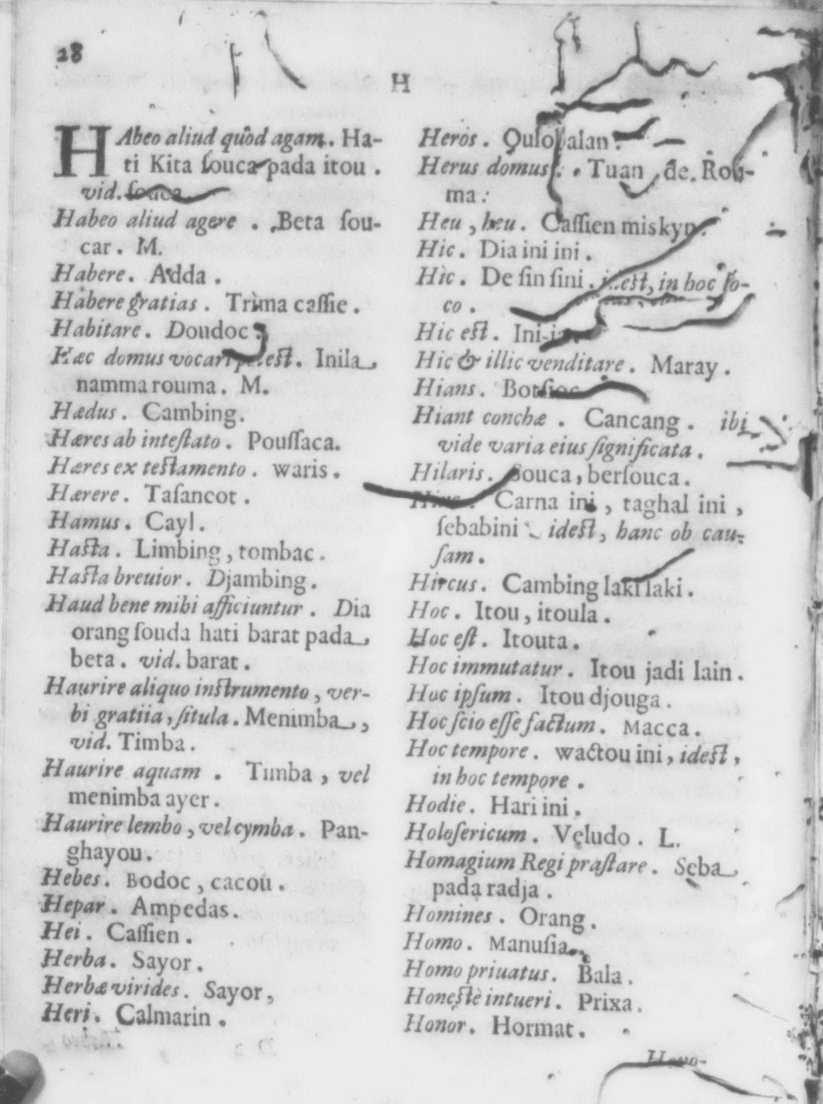 28
H
HAbeo aliud quòd agam. Ha-
ti Kita souca pada itou.
vid. souca
Habeo aliud agere. Beta sou-
car. M.
Habere. Adda.
Habere gratias. Trima cassie.
Habitare. Doudoc
Hæc domus vocari est. Inila
namma rouma. M.
Hædus. Cambing.
Hæres ab intestato. Poussaca.
Hæres ex testamento. waris.
Hærere. Tasancot.
Hamus. Cayl.
Hasta. Limbing, tombac.
Hasta breuior. Djambing.
Haud bene mihi afficiuntur. Dia
orang souda hati barat pada
beta. vid. barat.
Haurire aliquo instrumento, ver-
bi gratiia, situla. Menimba,
vid. Timba.
Haurire aquam. Timba, vel
menimba ayer.
Haurire lembo, vel cymba. Pan-
ghayou.
Hebes. Bodoc, cacoù.
Hepar. Ampedas.
Hei. Cassien.
Herba. Sayor.
Herbæ virides. Sayor,
Heri. Calmarin.
Heros.
Herus domus. Tuan de Rou-
ma.
Heu, heu. Cassien miskyn.
Hic. Dia ini ini.
Hìc. De sin sini. i. est, in hoc lo-
co.
Hic est.
Hic & illic venditare. Maray.
Hians.
Hiant conchæ. Cancang. ibi
vide varia eius significata.
Hilaris. Souca, bersouca.
Carna ini, taghal ini,
sebabini, idest, hanc ob cau-
sam.
Hircus. Cambing laki laki.
Hoc. Itou, itoula.
Hoc est. Itouta.
Hoc immutatur. Itou jadi lain.
Hoc ipsum. Itou djouga.
Hoc scio esse factum. Macca.
Hoc tempore. wactou ini, idest,
in hoc tempore.
Hodie. Hari ini.
Holosericum. Veludo. L.
Homagium Regi præstare. Seba
pada radja.
Homines. Orang.
Homo. Manusia.
Homo priuatus. Bala.
Honestè intueri. Prixa.
Honor. Hormat.
Hono-